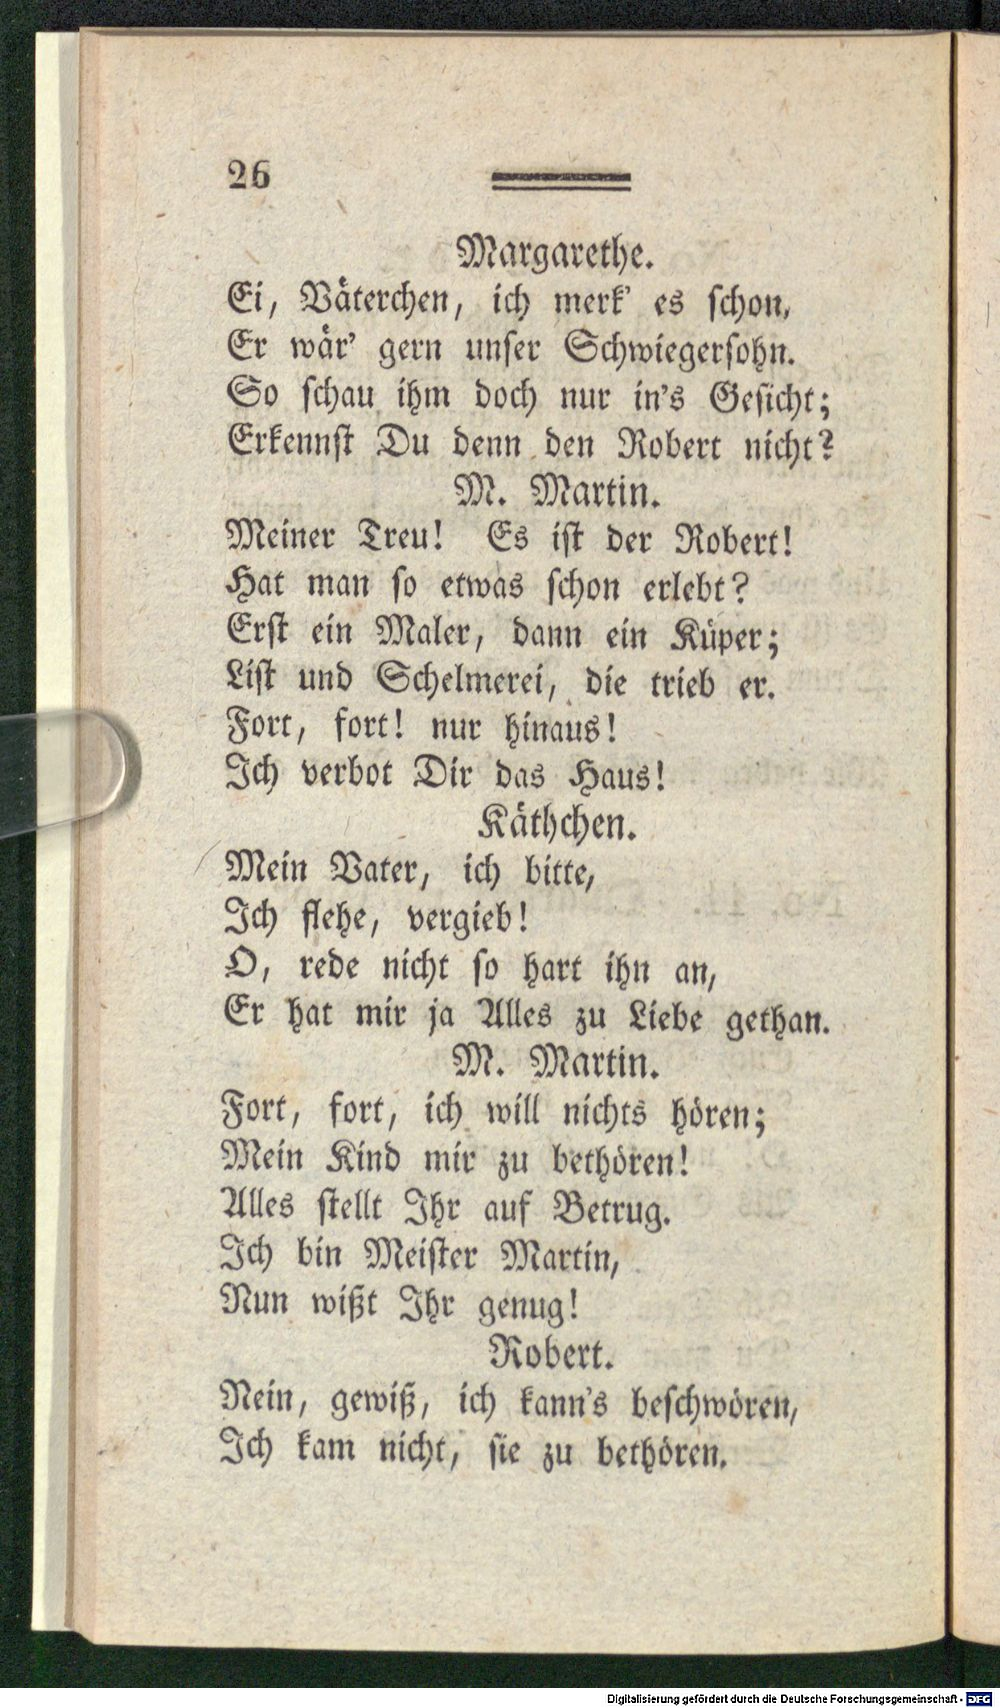 26
Margarethe.
Ei, Väterchen, ich merk' es schon,
Er wär' gern unser Schwiegersohn.
So schau ihm doch nur in's Gesicht;
Erkennst Du denn den Robert nicht?
M. Martin.
Meiner Treu! Es ist der Robert!
Hat man so etwas schon erlebt?
Erst ein Maler, dann ein Küper;
List und Schelmerei, die trieb er.
Fort, fort! nur hinaus!
Ich verbot Dir das Haus!
Käthchen.
Mein Vater, ich bitte,
Ich flehe, vergieb!
O, rede nicht so hart ihn an,
Er hat mir ja Alles zu Liebe gethan.
M. Martin.
Fort, fort, ich will nichts hören;
Mein Kind mir zu bethören!
Alles stellt Ihr auf Betrug.
Ich bin Meister Martin,
Nun wißt Ihr genug!
Robert.
Nein, gewiß, ich kann's beschwören,
Ich kam nicht, sie zu bethören.
Digitalisierung gefördert durch die Deutsche Forschungsgemeinschaft - DFG